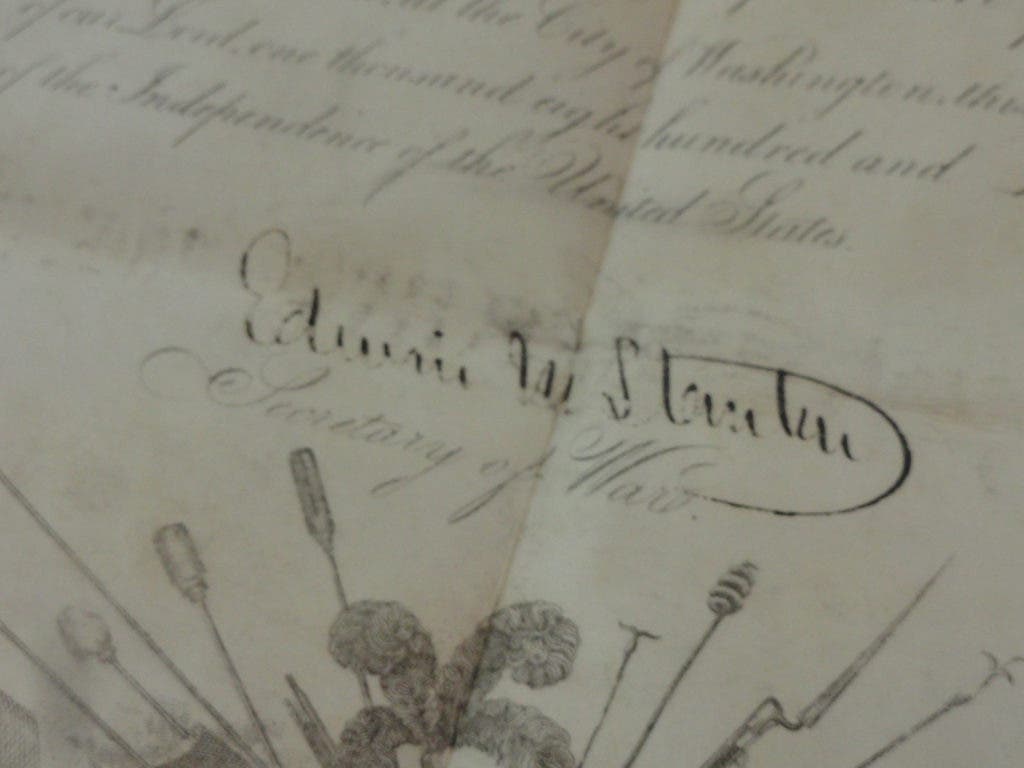 at the City of Washington, this
of our Lord, one thousand eight hundred and
of the Independence of the United States.
Edwin M Stanton
Secretary of War.